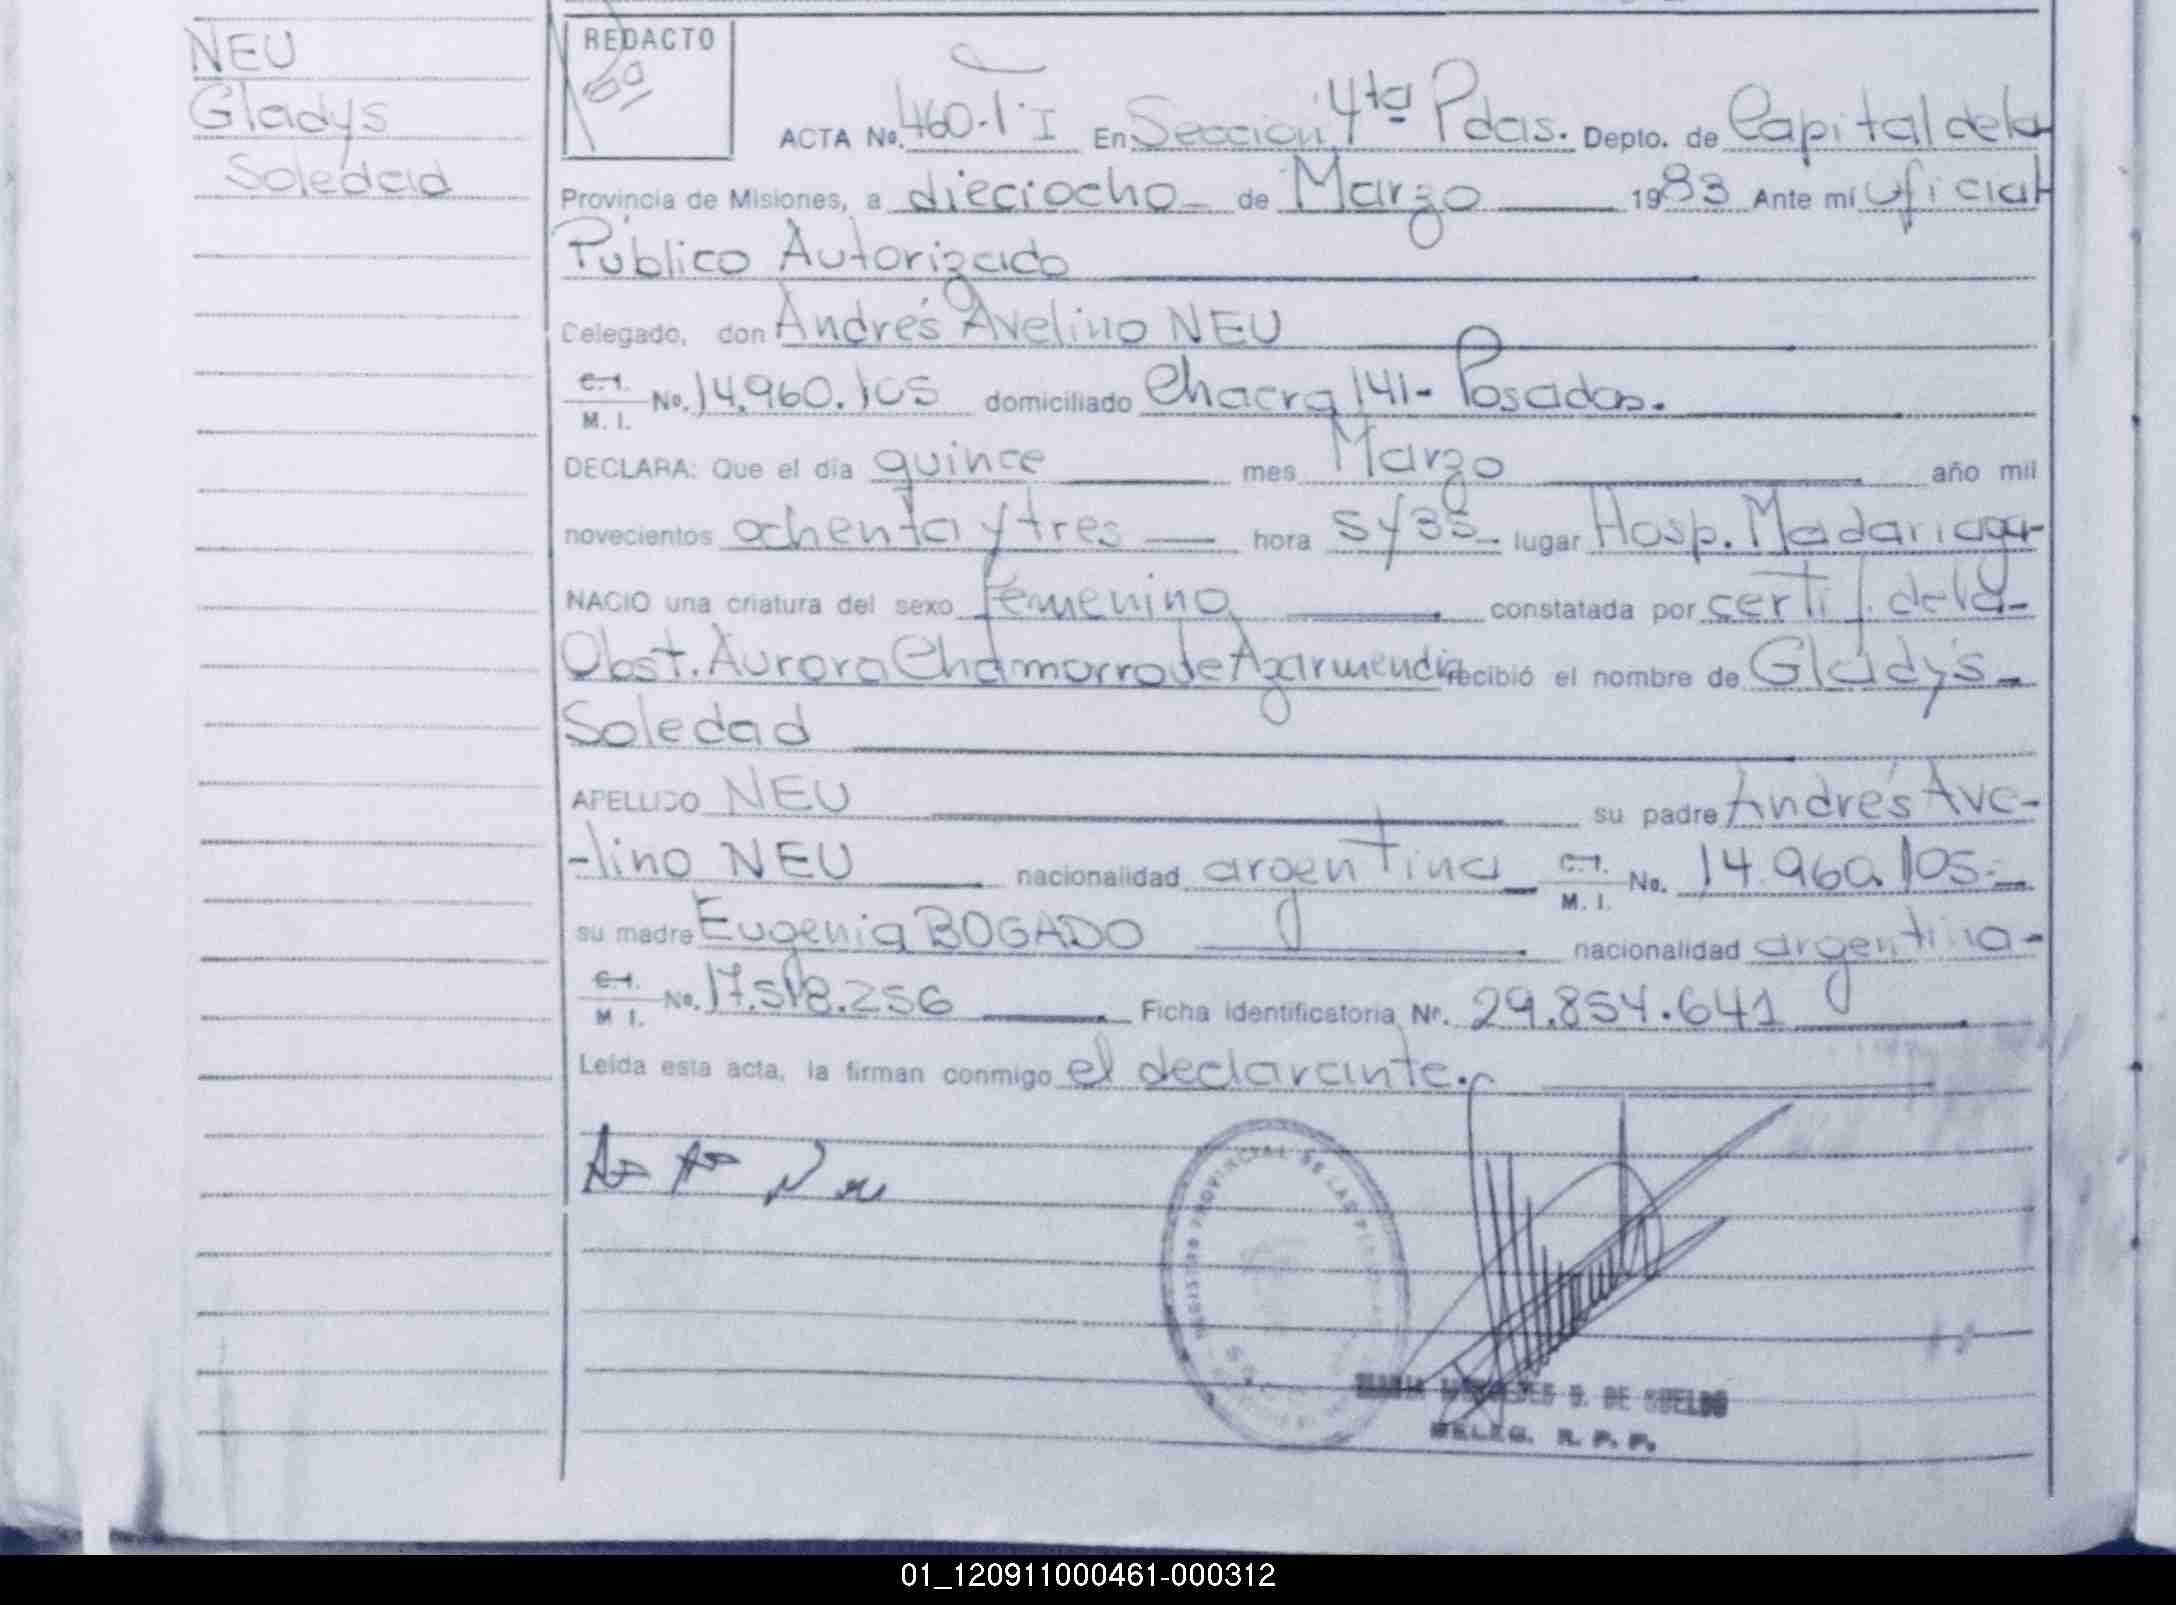 NEU
Gladys
Soledad
REDACTO
ACTA No. 460-TºI En Sección 4ta Pdas. Depto. de Capital de la
Provincia de Misiones, a dieciocho de Marzo 1983 Ante mí oficial
Público Autorizado
Delegado, don Andrés Avelino NEU
C.I.
M. I. No. 14.960.105 domiciliado Chacra 141- Posadas.
DECLARA: Que el día quince mes Marzo año mil
novecientos ochenta y tres hora 5 y 35 lugar Hosp. Madariaga-
NACIO una criatura del sexo femenino constatada por certif. de la-
Obst. Aurora Chamorro de Azarmendia recibió el nombre de Gladys-
Soledad
APELLIDO NEU su padre Andrés Ave-
-lino NEU nacionalidad argentina C.I.
M. I. No. 14.960.105.-
su madre Eugenia BOGADO nacionalidad argentina-
C.I.
M I. No. 17.518.256 Ficha identificatoria Nº. 29.854.641
Leída esta acta, la firman conmigo el declarante.
REGISTRO PROVINCIAL DE LAS
DE SUELDO
DELEG. R. P. P.
01_120911000461-000312